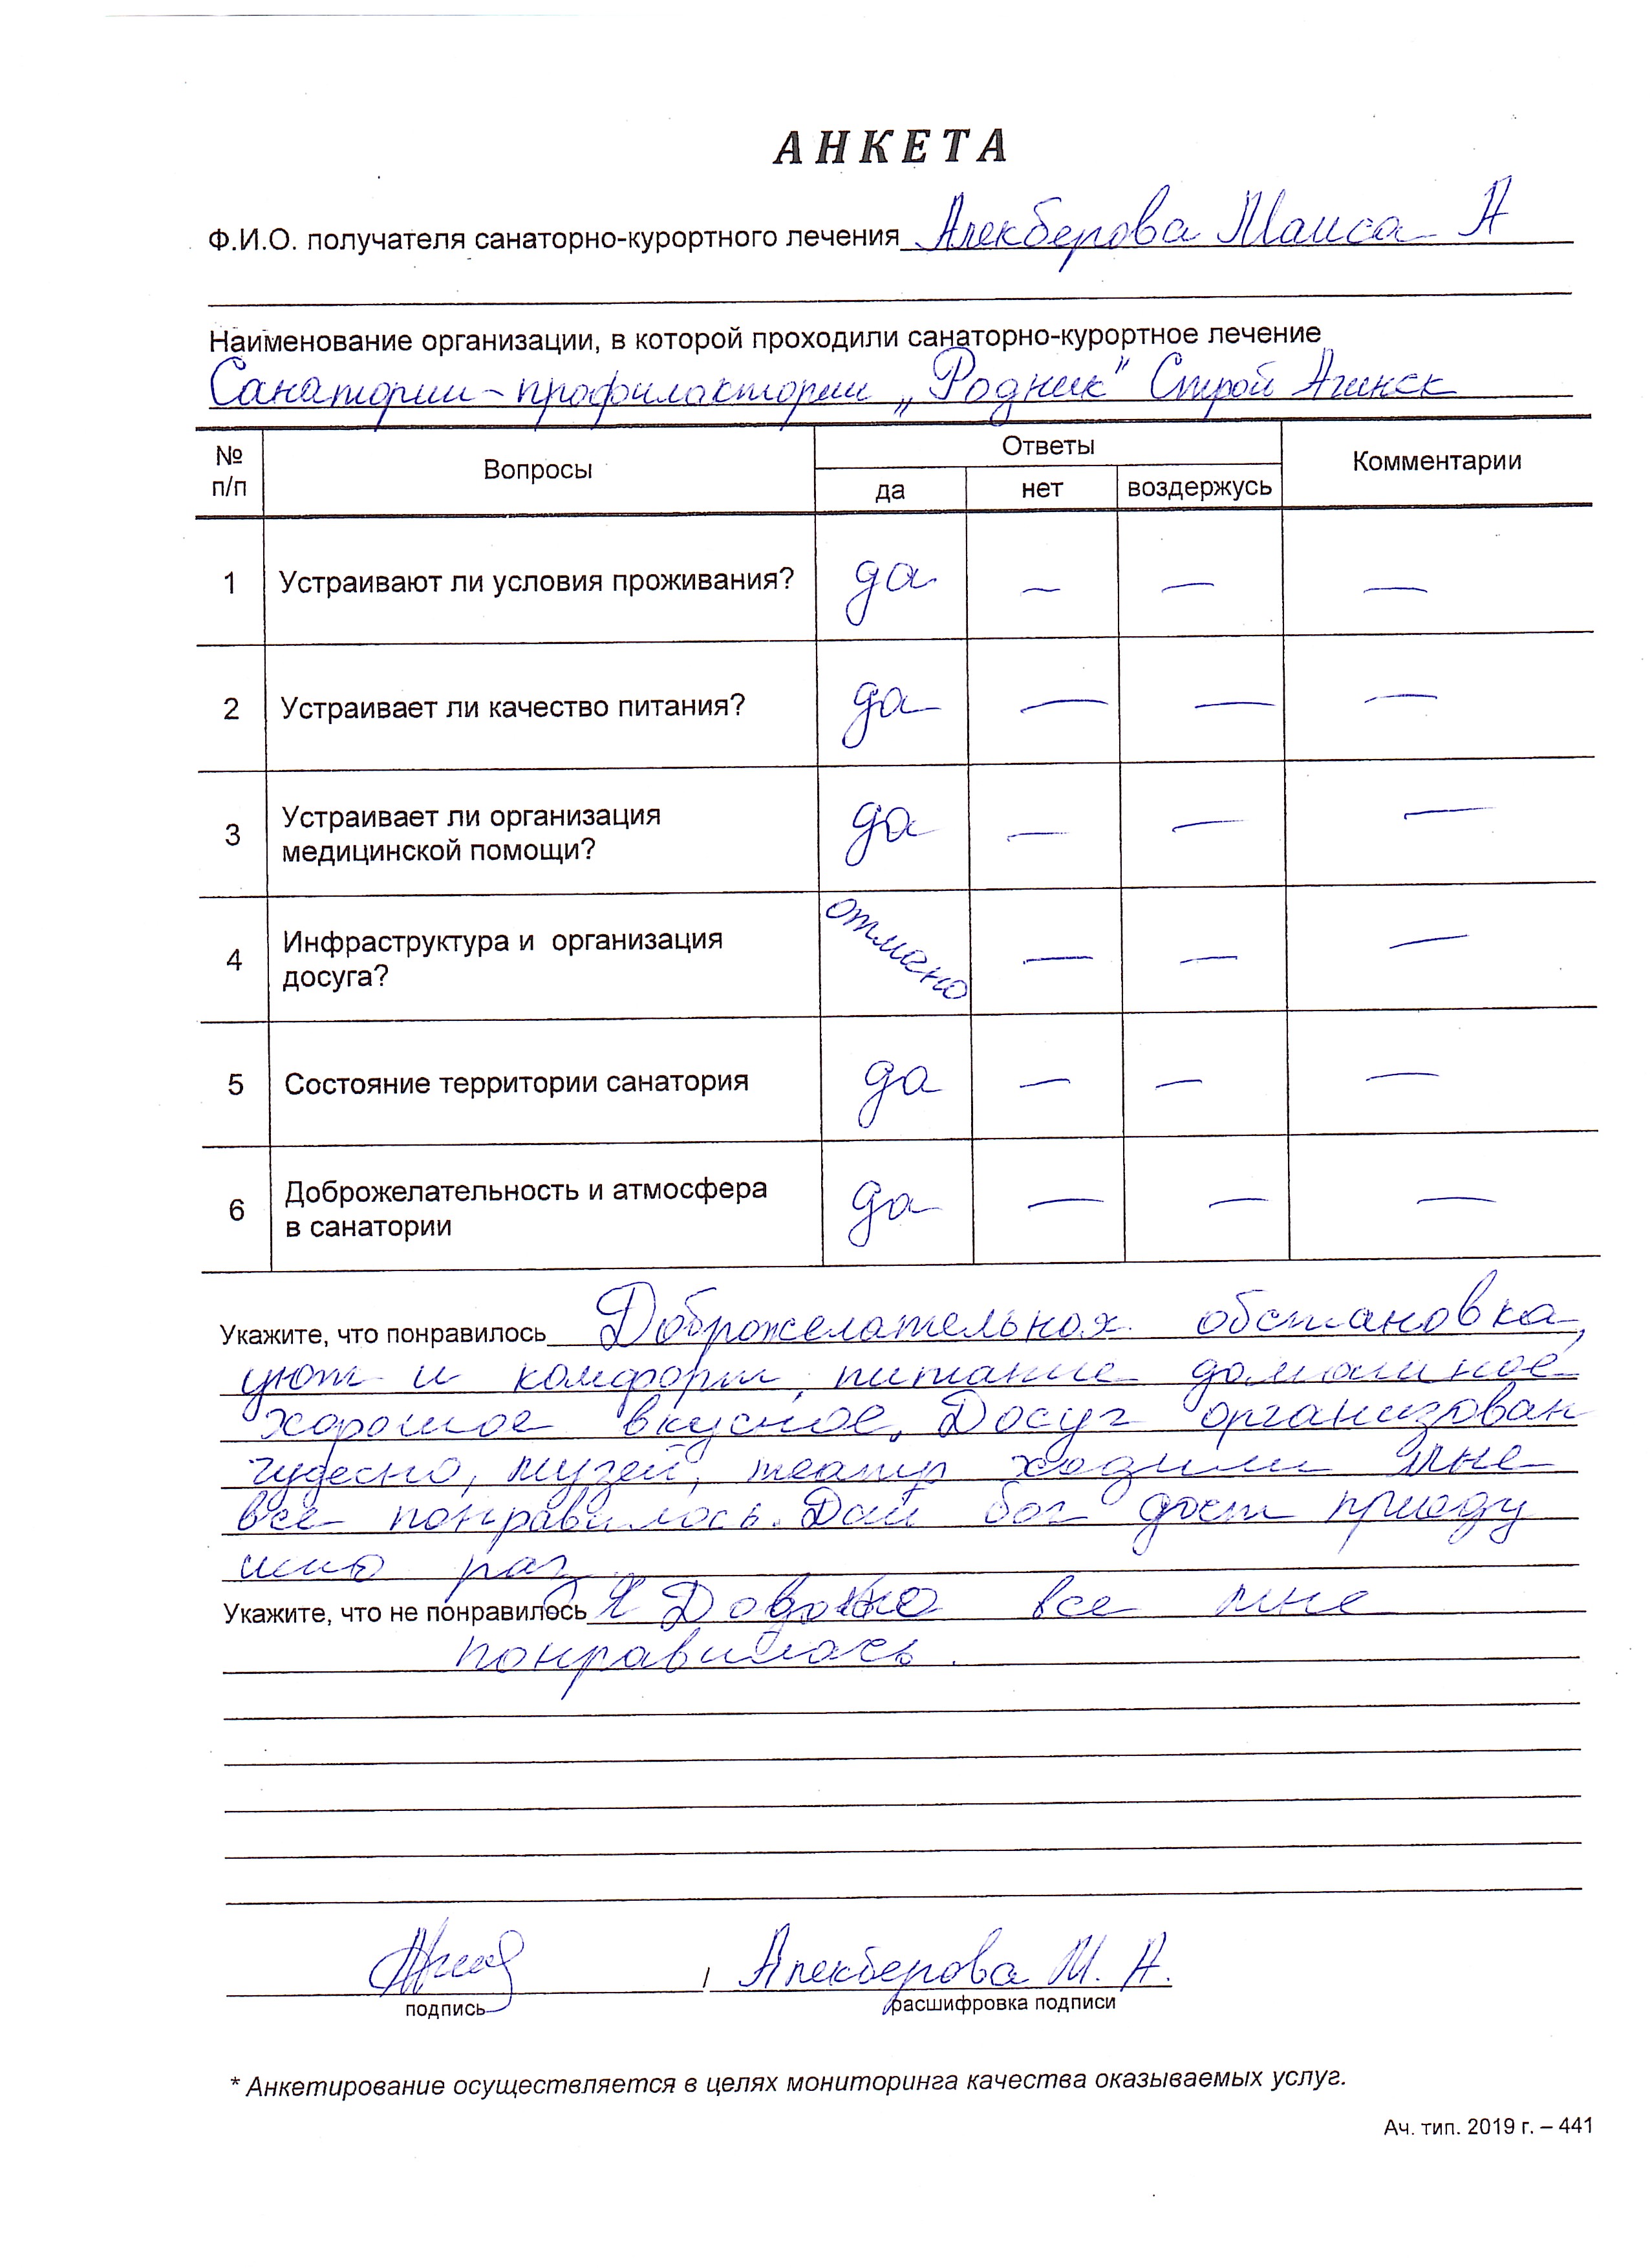 АНКЕТА
Ф.И.О. получателя санаторно-курортного лечения Алекберова Маиса А
Наименование организации, в которой проходили санаторно-курортное лечение
Санатории-профилактории „Родник" Строй Ачинск
№ п/п Вопросы Ответы Комментарии
да нет воздержусь
1 Устраивают ли условия проживания? да — — —
2 Устраивает ли качество питания? да — — —
3 Устраивает ли организация
медицинской помощи? да — — —
4 Инфраструктура и организация
досуга? отлично — — —
5 Состояние территории санатория да — — —
6 Доброжелательность и атмосфера
в санатории да — — —
Укажите, что понравилось Доброжелательная обстановка,
уют и комфорт, питание домашное
хорошое вкусное, Досуг организован
чудесно, музей, театр ходили мне
все понравилось. Дай бог даст приеду
ишо раз
Укажите, что не понравилось Я все мне
понравилось.
подпись / Алекберова М. А.
расшифровка подписи
* Анкетирование осуществляется в целях мониторинга качества оказываемых услуг.
Ач. тип. 2019 г. – 441